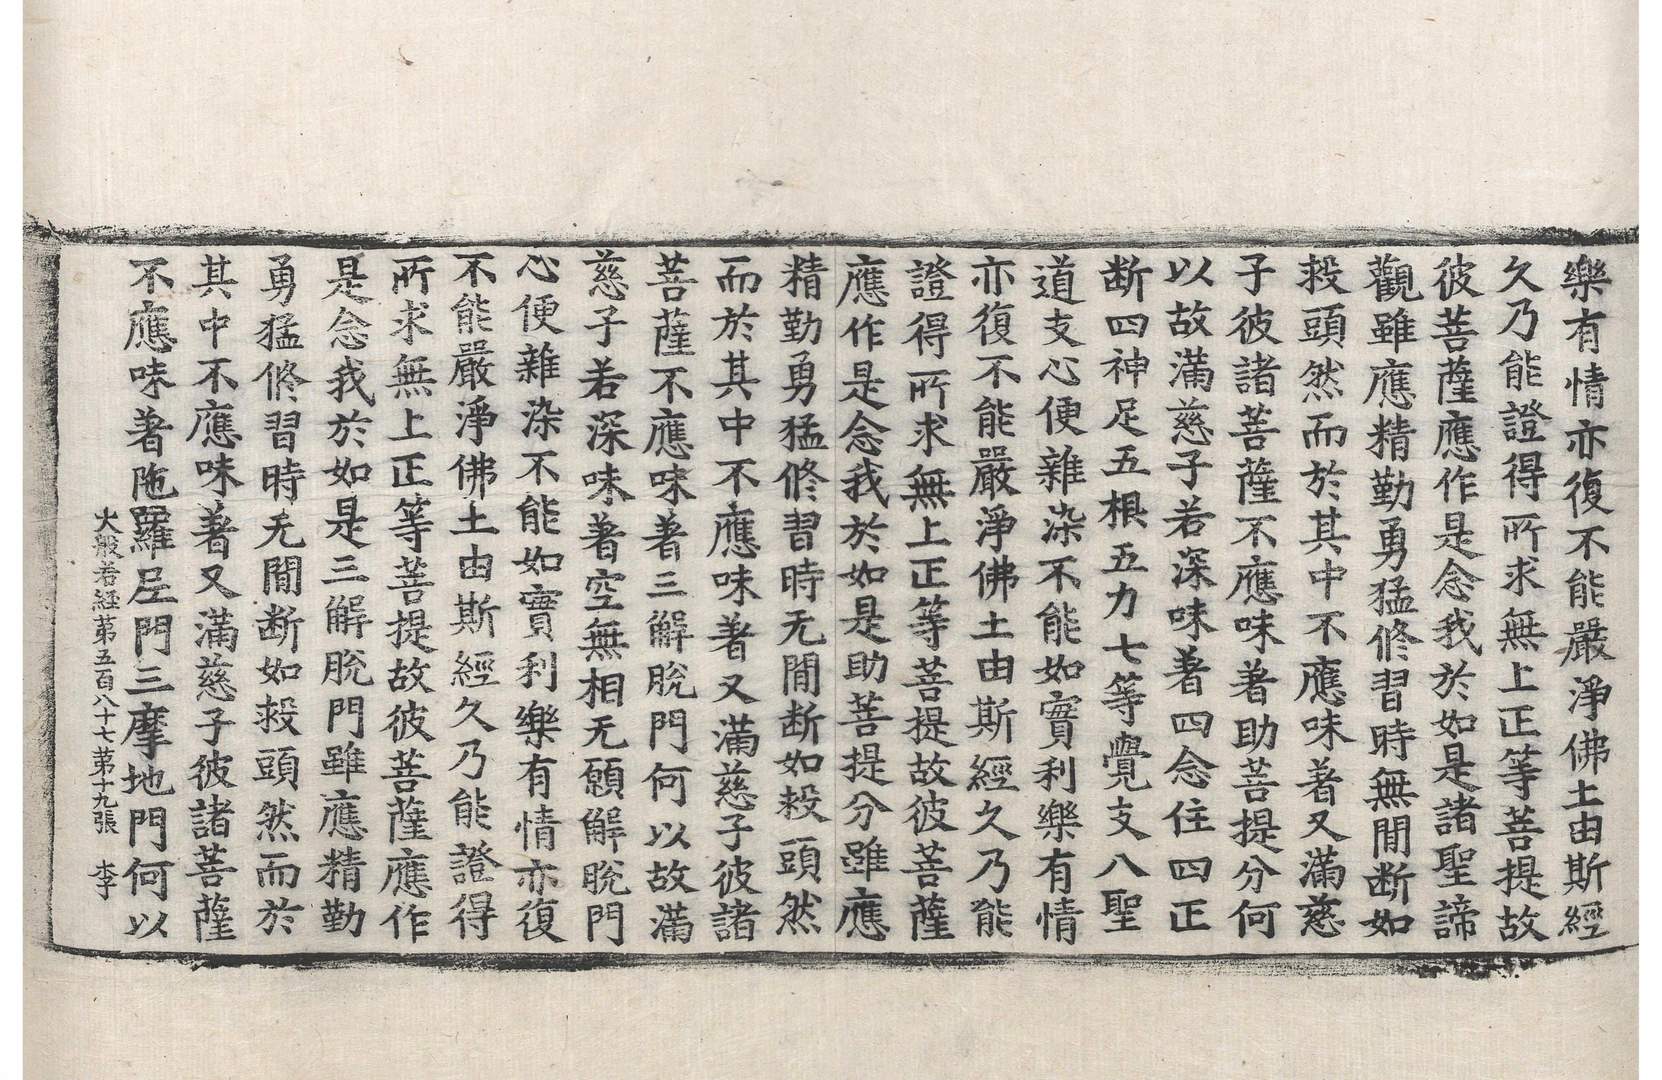 樂有情亦復不能嚴淨佛土由斯經
久乃能證得所求無上正等菩提故
彼菩薩應作是念我於如是諸聖諦
觀雖應精勤勇猛修習時無閒断如
救頭然而於其中不應味著又滿慈
子彼諸菩薩不應味著助菩提分何
以故滿慈子若深味著四念住四正
断四神足五根五力七等覺支八聖
道支心便雜染不能如實利樂有情
亦復不能嚴淨佛土由斯經久乃能
證得所求無上正等菩提故彼菩薩
應作是念我於如是助菩提分雖應
精勤勇猛修習時无閒断如救頭然
而於其中不應味著又滿慈子彼諸
菩薩不應味著三解脫門何以故滿
慈子若深味著空無相无願解脫門
心便雜染不能如實利樂有情亦復
不能嚴淨佛土由斯經久乃能證得
所求無上正等菩提故彼菩薩應作
是念我於如是三解脫門雖應精勤
勇猛修習時无閒断如救頭然而於
其中不應味著又滿慈子彼諸菩薩
不應味著陁羅尼門三摩地門何以
大般若經第五百八十七第十九張 李